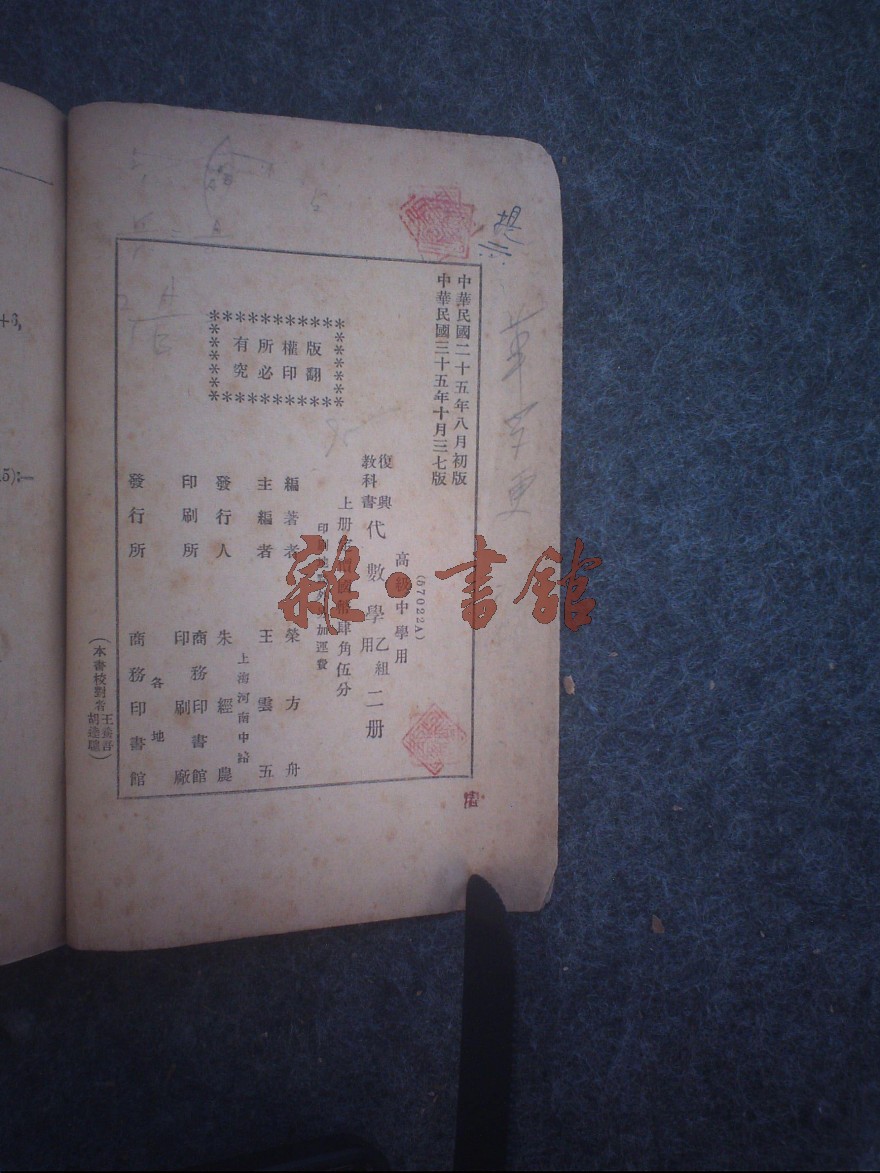 中華民國二十五年八月初版
中華民國三十五年十月三七版
(57022A)
高級中學用
復興教科書 代數學 乙組用 二册
上册 國幣肆角伍分
印刷 加運費
編著者 榮方舟
主編者 王雲五
上海河南中路
發行人 朱經農
印刷所 商務印書館印刷廠
各地
發行所 商務印書館
(本書校對者 王養吾 胡達聰)
版權所有
翻印必究
+3,
15):—
雜·書館